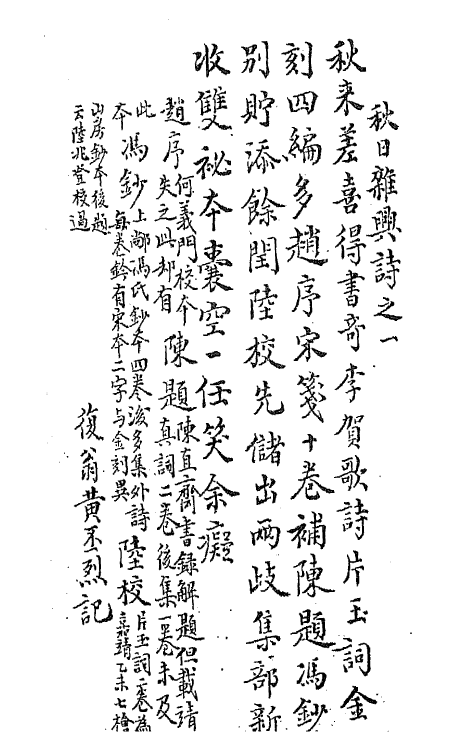 秋日雜興詩之一
秋来差喜得書奇李賀歌詩片玉詞金
刻四編多趙序宋箋十卷補陳題馮鈔
別貯添餘閏陸校先儲出兩歧集部新
收雙祕本囊空一任笑余癡
趙序何義門校本失之此却有陳題陳直齋書録解題但載清真詞二卷後集一卷未及
此本馮鈔上鄰馮氏鈔本四卷後多集外詩每卷鈐有宋本二字与金刻異陸校片玉詞二卷為嘉靖乙未七檜
山房鈔本後題云陸兆登校過
復翁黃丕烈記